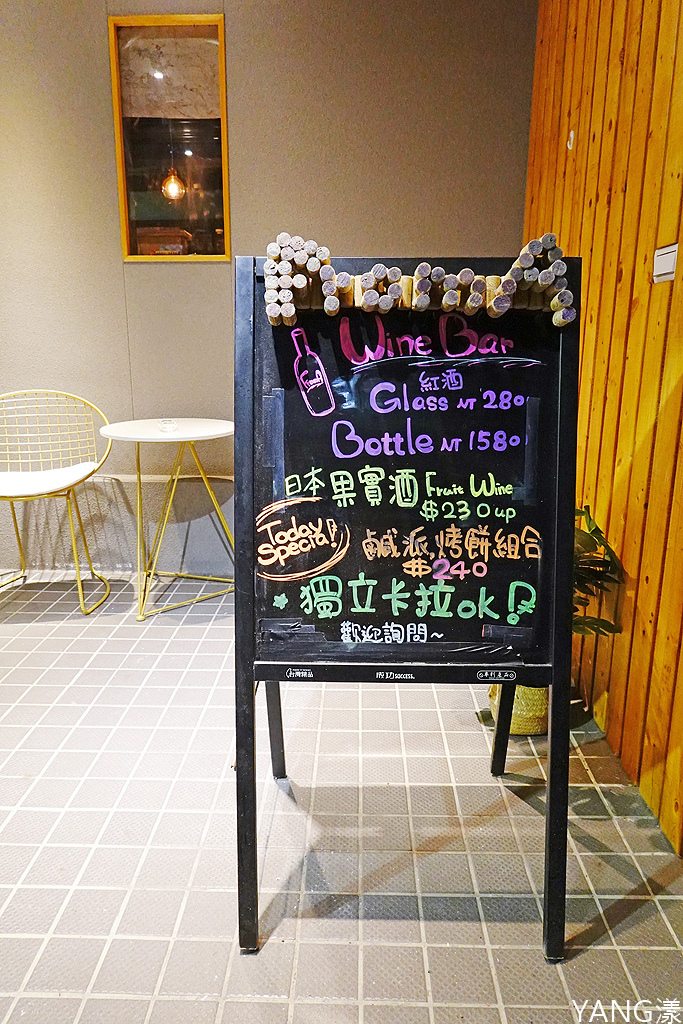 Wine Bar
紅酒
Glass NT 280
Bottle NT 1580
日本果實酒 Fruit Wine
$230up
Today Special!
鹹派,烤餅組合
$240
獨立卡拉ok!
歡迎詢問~
台灣精品
成功 success.
專利產品
YANG漾